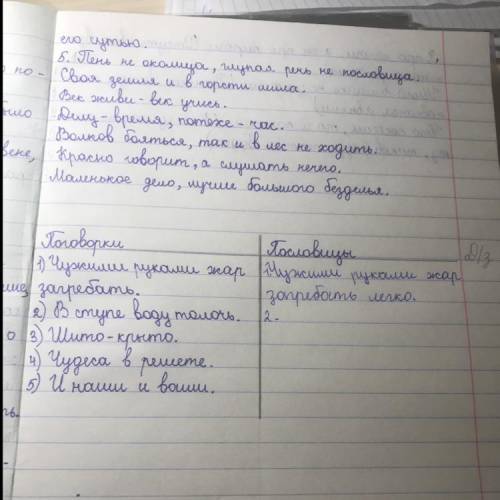 его сутью.
5. Пень не околица, глупая речь не пословица.
Своя земля и в горсти мила.
Век живи - век учись.
Делу - время, потехе - час.
Волков бояться, так и в лес не ходить.
Красно говорит, а слушать нечего.
Маленькое дело, лучше большого безделья.
Поговорки
1) Чужими руками жар
загребать.
2) В ступе воду толочь.
3) Шито-крыто.
4) Чудеса в решете.
5) И наши и ваши.
Пословицы
1. Чужими руками жар
загребать легко.
2.-
Д/з